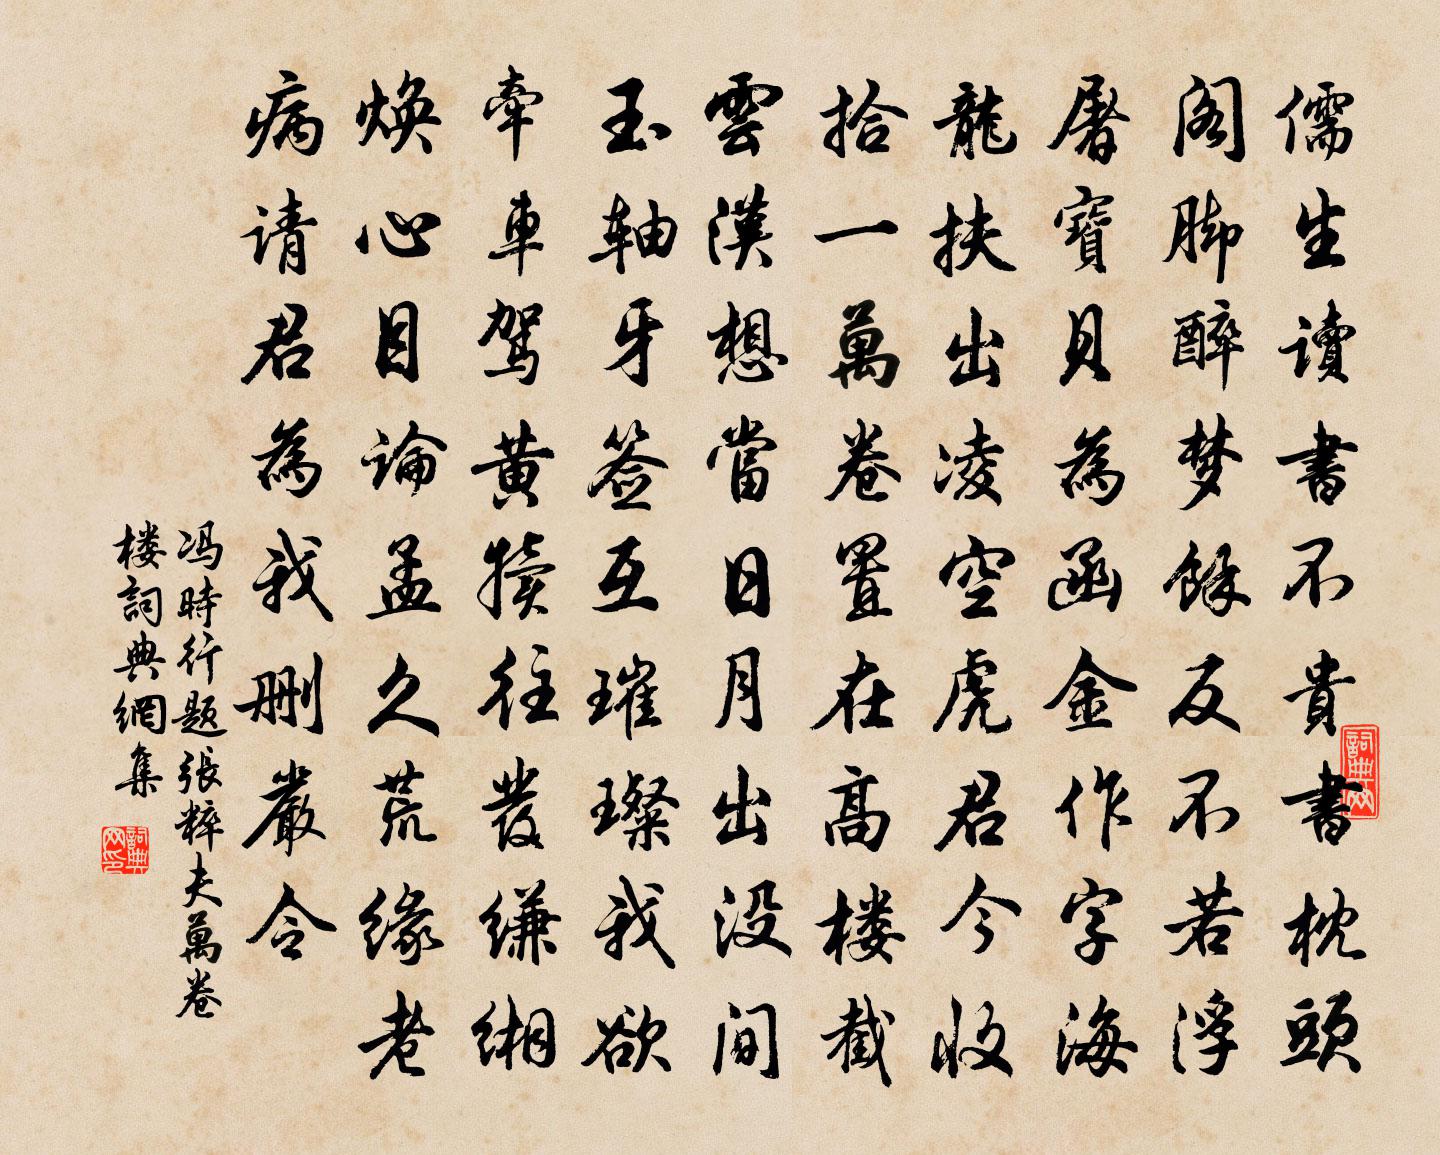 儒生读書不貴書枕頭
阁脚醉梦餘反不若浮
屠寶貝為函金作字海
龍扶出凌空虎君今收
拾一萬卷置在高楼截
雲漢想當日月出没间
玉轴牙签互璀璨我欲
牽車驾黄犊往發缣缃
焕心目論孟久荒缘老
病请君為我删嚴令
冯時行题張粹夫萬卷
楼詞典網集
詞典网
詞典网印